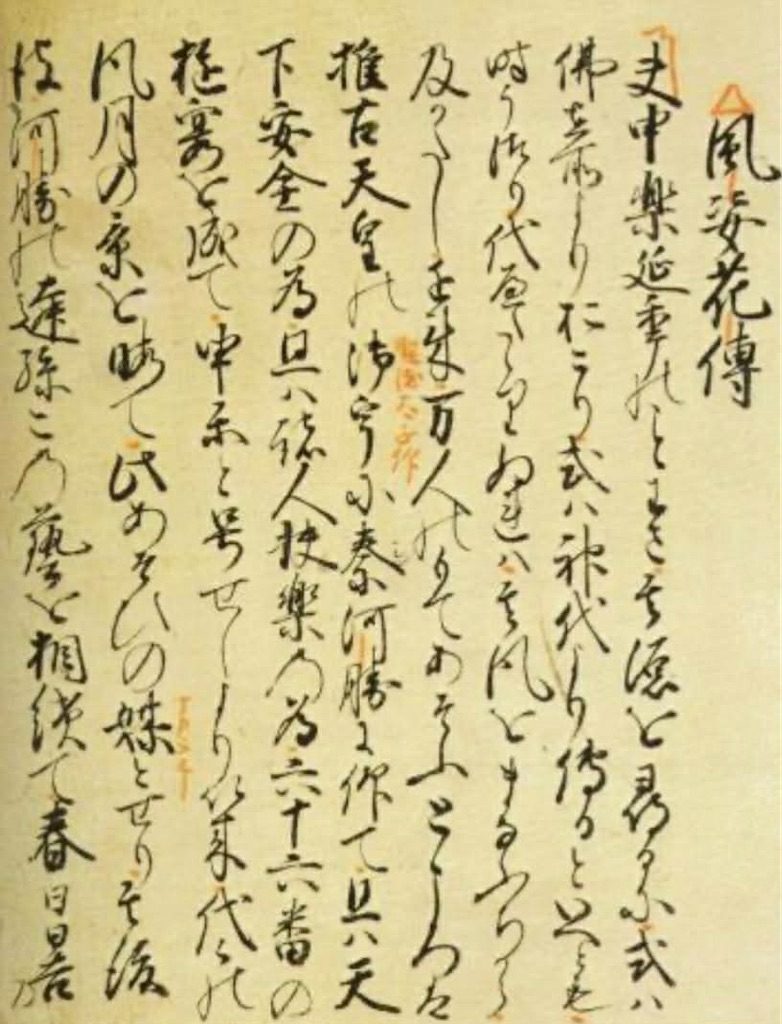 風姿花傳
夫申樂延年のことわさ其源を尋るに或ハ
佛在所よりおこり或ハ神代より傳ると云とも
時うつり代へたゝりぬれハ其風をまなふちから
及かたし近来万人のもてあそふところは
推古天皇の御宇に秦河勝に仰て且ハ天
下安全の為且ハ諸人快樂の為六十六番の
遊宴を成て申楽と号せしより以来代々の
風月の景を假て此あそひの媒とせり其後
彼河勝の遠孫この藝を相續て春日日吉の